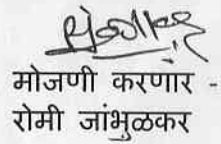 मोजणी करणार -
रोमी जांभुळकर